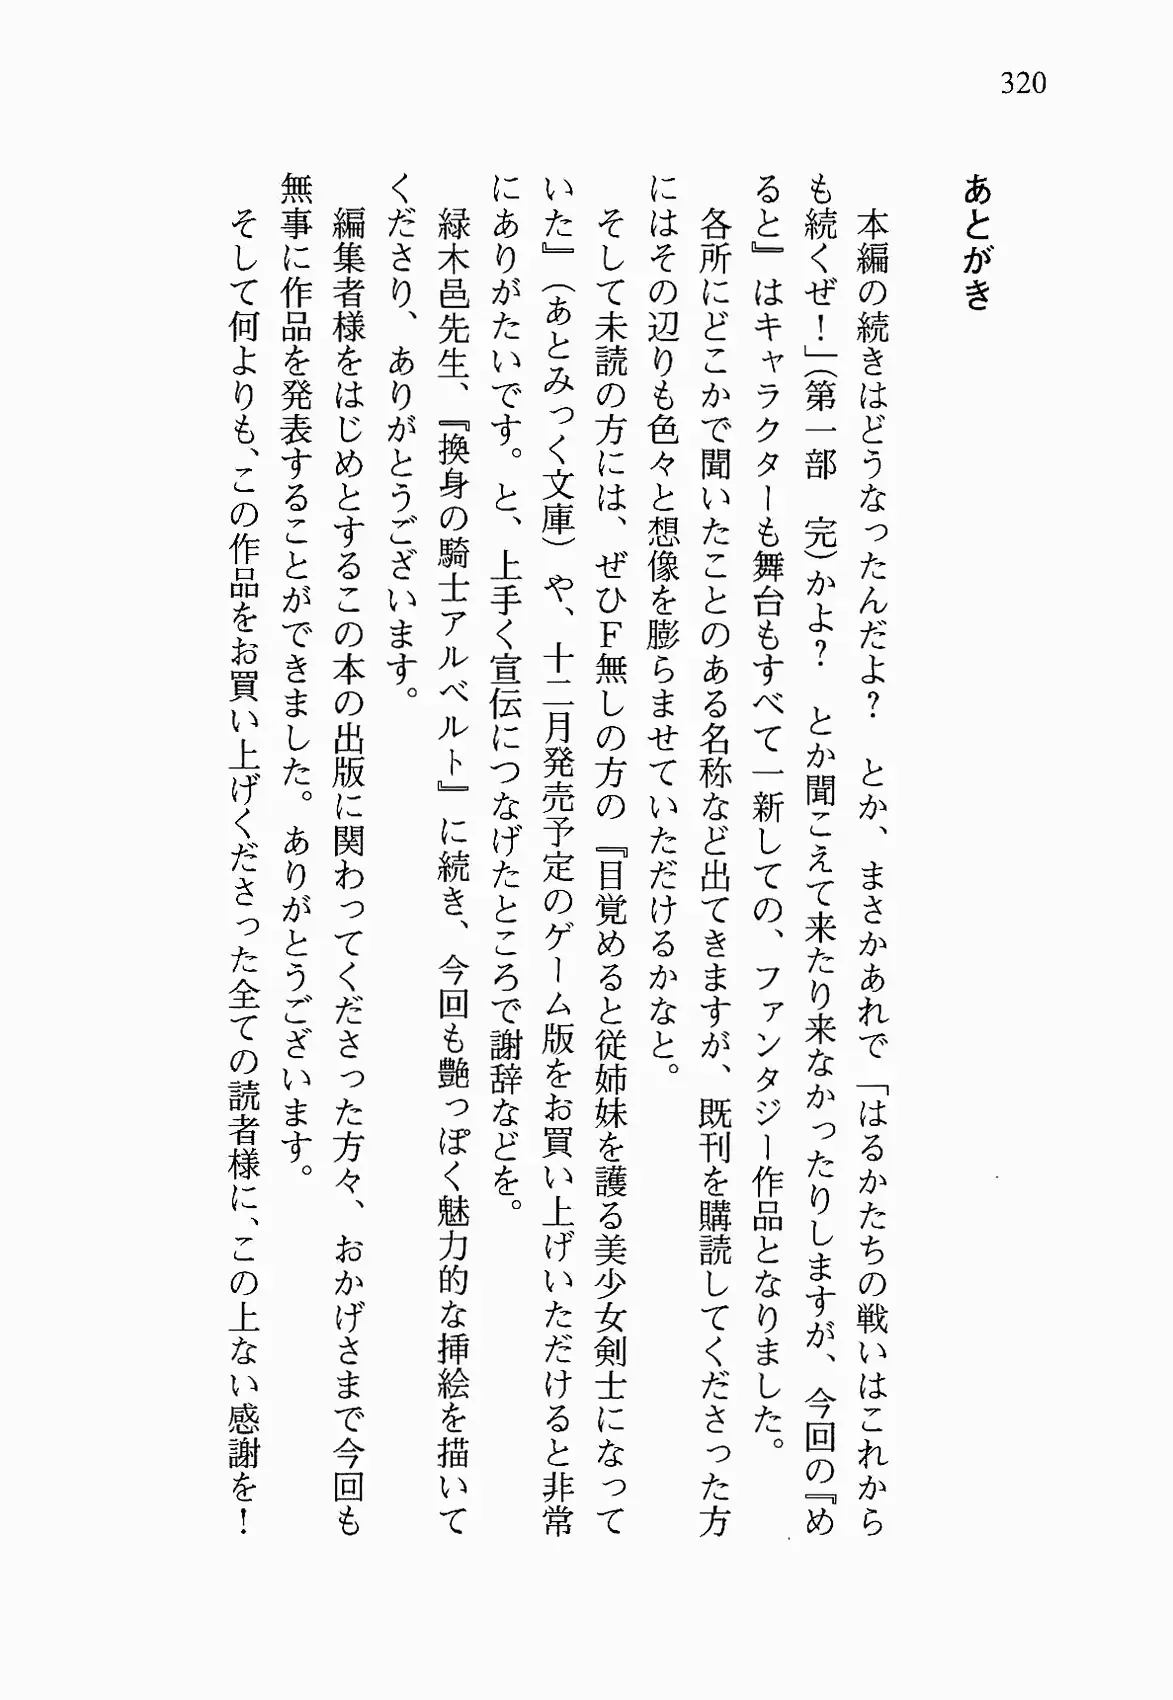 320
あとがき
　本編の続きはどうなったんだよ？　とか、まさかあれで「はるかたちの戦いはこれから
も続くぜ！」（第一部　完）かよ？　とか聞こえて来たり来なかったりしますが、今回の『め
ると』はキャラクターも舞台もすべて一新しての、ファンタジー作品となりました。
　各所にどこかで聞いたことのある名称など出てきますが、既刊を購読してくださった方
にはその辺りも色々と想像を膨らませていただけるかなと。
　そして未読の方には、ぜひＦ無しの方の『目覚めると従姉妹を護る美少女剣士になって
いた』（あとみっく文庫）や、十二月発売予定のゲーム版をお買い上げいただけると非常
にありがたいです。と、上手く宣伝につなげたところで謝辞などを。
　緑木邑先生、『換身の騎士アルベルト』に続き、今回も艶っぽく魅力的な挿絵を描いて
くださり、ありがとうございます。
　編集者様をはじめとするこの本の出版に関わってくださった方々、おかげさまで今回も
無事に作品を発表することができました。ありがとうございます。
　そして何よりも、この作品をお買い上げくださった全ての読者様に、この上ない感謝を！